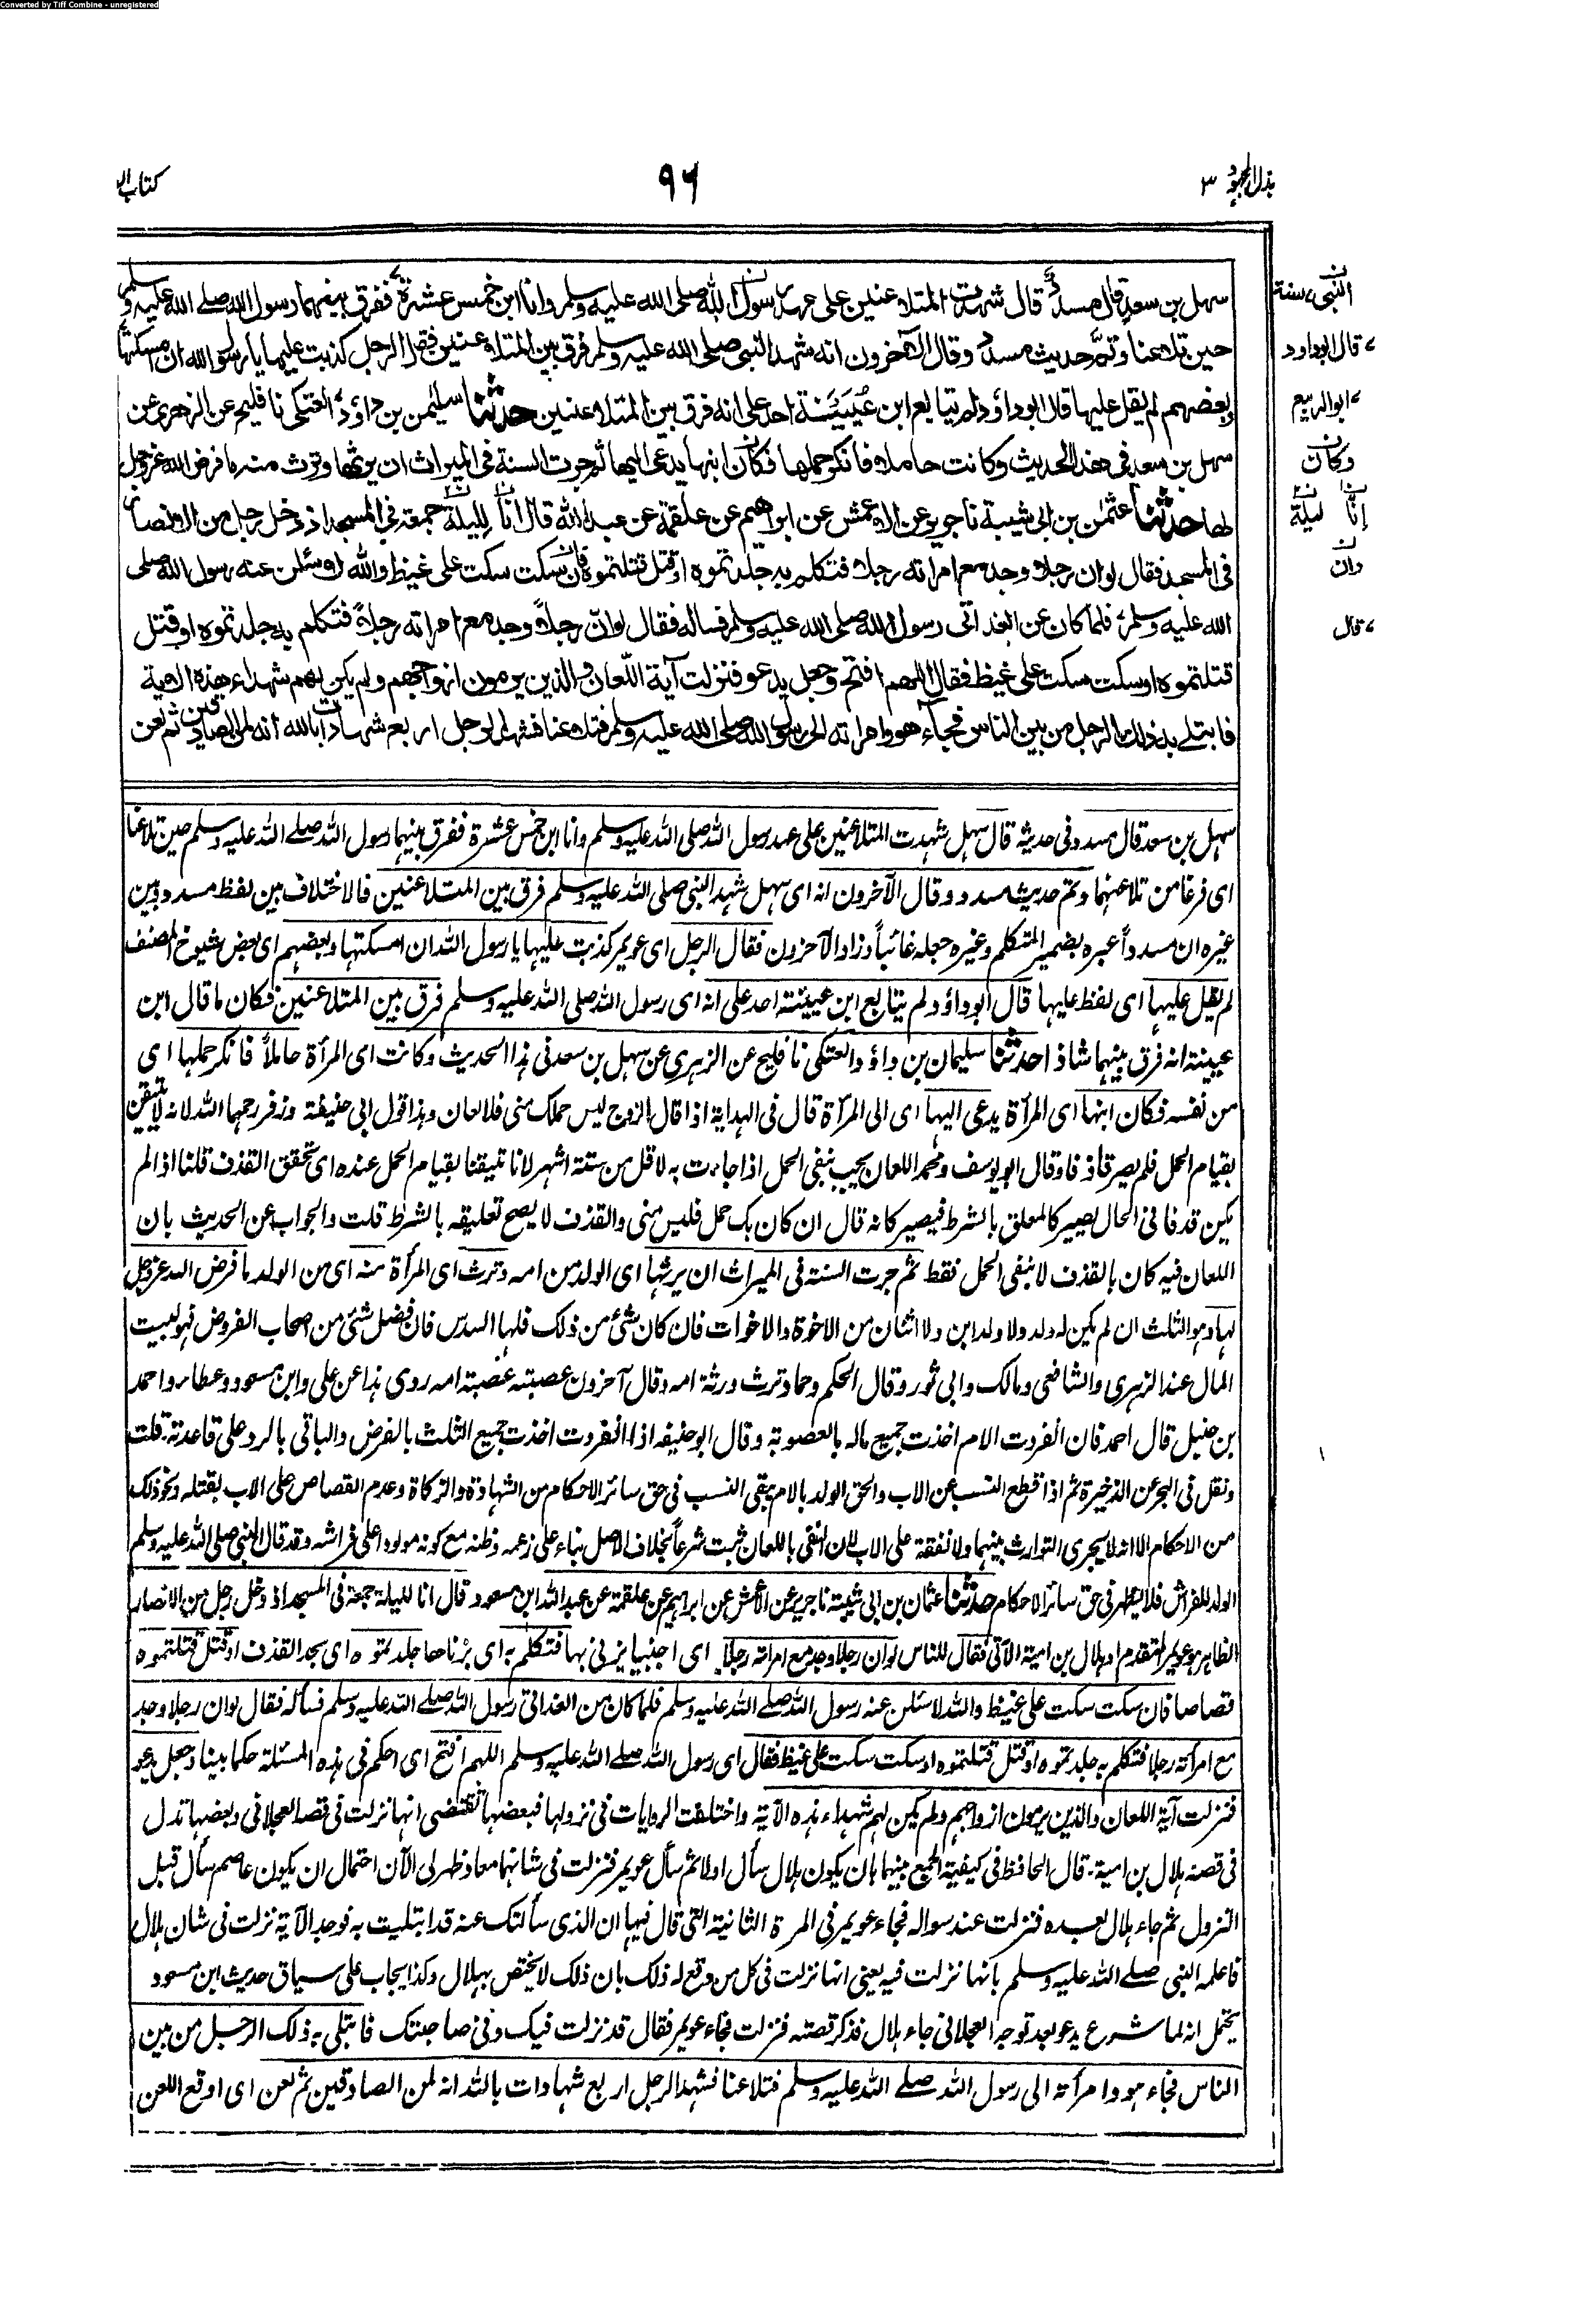 Converted by Tiff Combine - unregistered
بذل المجهود ٣
٩٦
كتاب ال
سهل بن سعد قال مسدد قال شهدت المتلاعنين على عهد رسول الله صلى الله عليه وسلم وانا ابن خمس عشرة ففرق بينهما رسول الله صلى الله عليه وسلم
حين تلاعنا وتم حديث مسدد وقال الآخرون انه شهد النبي صلى الله عليه وسلم فرق بين المتلاعنين فقال الرجل كذبت عليها يا رسول الله ان امسكتها
وبعضهم لم يقل عليها قال ابو داؤد لم يتابع ابن عيينة احد على انه فرق بين المتلاعنين حدثنا سليمن بن داؤد العتكي نا فليح عن الزهري عن
سهل بن سعد في هذا الحديث وكانت حاملا فانكر حملها فكان ابنها يدعى اليها ثم جرت السنة في الميراث ان يرثها وترث منه ما فرض الله عزوجل
لها حدثنا عثمن بن ابي شيبة نا جرير عن الاعمش عن ابراهيم عن علقمة عن عبد الله قال انا لليلة جمعة في المسجد اذ دخل رجل من الانصار
في المسجد فقال لو ان رجلا وجد مع امراته رجلا فتكلم به جلدتموه او قتل قتلتموه فان سكت سكت على غيظ والله لاسئلن عنه رسول الله صلى
الله عليه وسلم فلما كان من الغد اتى رسول الله صلى الله عليه وسلم فساله فقال لو ان رجلا وجد مع امراته رجلا فتكلم به جلدتموه او قتل
قتلتموه او سكت سكت على غيظ فقال اللهم افتح وجعل يدعو فنزلت آية اللعان والذين يرمون ازواجهم ولم يكن لهم شهداء هذه الاية
فابتلي به ذلك الرجل من بين الناس فجاء هو وامراته الى رسول الله صلى الله عليه وسلم فتلاعنا فشهد الرجل اربع شهادات بالله انه لمن الصادقين ثم لعن
النبي سنة
قال ابو داود
ابو الربيع
وكان
انا ليلة
وان
قال
سهل بن سعد قال مسدد في حديثه قال سهل شهدت المتلاعنين على عهد رسول الله صلى الله عليه وسلم وانا ابن خمس عشرة ففرق بينهما رسول الله صلے الله عليه وسلم حين تلاعنا
اى فرغا من تلاعنهما وتم حديث مسدد وقال الآخرون انه اى سهل شهد النبي صلى الله عليه وسلم فرق بين المتلاعنين فالاختلاف بين لفظ مسدد وبين
غيره ان مسدداً عبره بضمير المتكلم وغيره جعله غائباً وزاد الآخرون فقال الرجل اى عويمر كذبت عليها يا رسول الله ان امسكتها وبعضهم اى بعض شيوخ المصنف
لم يقل عليها اى لفظ عليها قال ابو داؤد لم يتابع ابن عيينة احد على انه اى رسول الله صلى الله عليه وسلم فرق بين المتلاعنين فكان ما قال ابن
عيينة انه فرق بينهما شاذ احدثنا سليمان بن داؤد العتكى نا فليح عن الزهرى عن سهل بن سعد فى هذا الحديث وكانت اى المرأة حاملاً فانكر حملها اى
من نفسه فكان ابنها اى المرأة يدعى اليها اى الى المرأة قال فى الهداية اذا قال الزوج ليس حملك منى فلا لعان وهذا قول ابى حنيفة وزفر رحمهما الله لانه لا يتيقن
بقيام الحمل فلم يصر قاذفا وقال ابو يوسف ومحمد اللعان يجب بنفى الحمل اذا جاءت به لاقل من ستة اشهر لانا تيقنا بقيام الحمل عنده اى تحقق القذف قلنا اذا لم
يكن قذفا فى الحال يصير كالمعلق بالشرط فيصير كانه قال ان كان بك حمل فليس منى والقذف لا يصح تعليقه بالشرط قلت والجواب عن الحديث بان
اللعان فيه كان بالقذف لا بنفى الحمل فقط ثم جرت السنة فى الميراث ان يرثها اى الولد من امه وترث اى المرأة منه اى من الولد ما فرض الله عزوجل
لها وهو الثلث ان لم يكن له ولد ولا ولد ابن ولا اثنان من الاخوة والاخوات فان كان شئ من ذلك فلها السدس فان فضل شئ من اصحاب الفروض فهو لبيت
المال عند الزهرى والشافعى ومالك وابى ثور وقال الحكم وحماد وترث ورثة امه وقال آخرون عصبته عصبة امه روى هذا عن على وابن مسعود وعطاء واحمد
بن حنبل قال احمد فان انفردت الام اخذت جميع ماله بالعصوبة وقال ابو حنيفه اذا انفردت اخذت جميع الثلث بالفرض والباقى بالرد على قاعدته قلت
ونقل فى البحر عن الذخيرة ثم اذا قطع النسب عن الاب والحق الولد بالام يبقى النسب فى حق سائر الاحكام من الشهادة والزكاة وعدم القصاص على الاب بقتله ونحو ذلك
من الاحكام الا انه لا يجرى التوارث بينهما ولا نفقة على الاب لان النفى باللعان ثبت شرعاً بخلاف الاصل بناء على زعمه وظنه مع كونه مولودا على فراشه وقد قال النبى صلى الله عليه وسلم
الولد للفراش فلا يظهر فى حق سائر الاحكام حدثنا عثمان بن ابى شيبة نا جرير عن الاعمش عن ابراهيم عن علقمة عن عبد الله ابن مسعود قال انا لليلة جمعة فى المسجد اذ دخل رجل من الانصار
الظاهر هو عويمر المتقدم او هلال بن امية الآتى فقال للناس لو ان رجلا وجد مع امراته رجلا اى اجنبيا يزنى بها فتكلم به اى بزناها جلدتموه اى بحد القذف او قتل قتلتموه
قصاصا فان سكت سكت على غيظ والله لاسئلن عنه رسول الله صلے الله عليه وسلم فلما كان من الغد اتى رسول الله صلے الله عليه وسلم فسأله فقال لو ان رجلا وجد
مع امرأته رجلا فتكلم به جلدتموه او قتل قتلتموه او سكت سكت على غيظ فقال اى رسول الله صلے الله عليه وسلم اللهم افتح اى احكم فى هذه المسئلة حكما بينا وجعل يدعو
فنزلت آية اللعان والذين يرمون ازواجهم ولم يكن لهم شهداء هذه الآية واختلفت الروايات فى نزولها فبعضها تقتضى انها نزلت فى قصة العجلانى وبعضها تدل
فى قصة هلال بن امية قال الحافظ فى كيفية الجمع بينهما بان يكون هلال سأل اولا ثم سأل عويمر فنزلت فى شانهما معا وظهر لى الآن احتمال ان يكون عاصم سأل قبل
النزول ثم جاء هلال بعده فنزلت عند سواله فجاء عويمر فى المرة الثانية التى قال فيها ان الذى سألتك عنه قد ابتليت به فوجد الآية نزلت فى شان هلال
فاعلمه النبى صلے الله عليه وسلم بانها نزلت فيه يعنى انها نزلت فى كل من وقع له ذلك بان ذلك لا يختص بهلال وكذا يجاب على سياق حديث ابن مسعود
يحتمل انه لما شرع يدعو بعد توجه العجلانى جاء هلال فذكر قصته فنزلت فجاء عويمر فقال قد نزلت فيك وفى صاحبتك فابتلى به ذلك الرجل من بين
الناس فجاء هو وامرأته الى رسول الله صلے الله عليه وسلم فتلاعنا فشهد الرجل اربع شهادات بالله انه لمن الصادقين ثم لعن اى اوقع اللعن